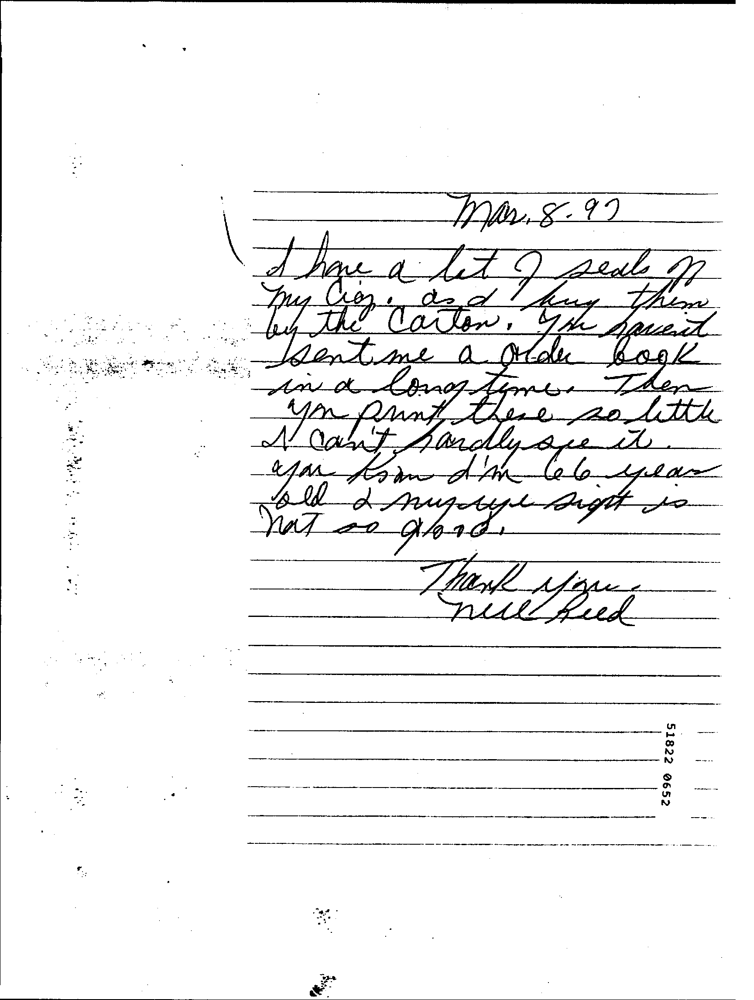 Mar. 8-97
I have a lot of seals off
my Cig. as I buy them
by the Carton. You havent
sent me a order book
in a long time. Then
you print these so little
I can't hardly see it.
you know I'm 66 year
old & my eye sight is
not so good.
Thank you.
Reed
51822 0652